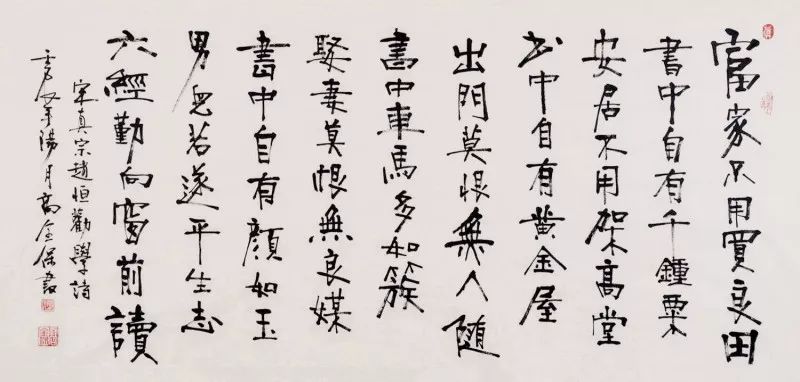 富家不用買良田
書中自有千鍾粟
安居不用架高堂
书中自有黄金屋
出門莫恨無人随
書中車馬多如簇
娶妻莫恨無良媒
書中自有顏如玉
男兒若遂平生志
六經勤向窗前讀
宋真宗趙恒勸學詩
壬辰年陽月高金保書